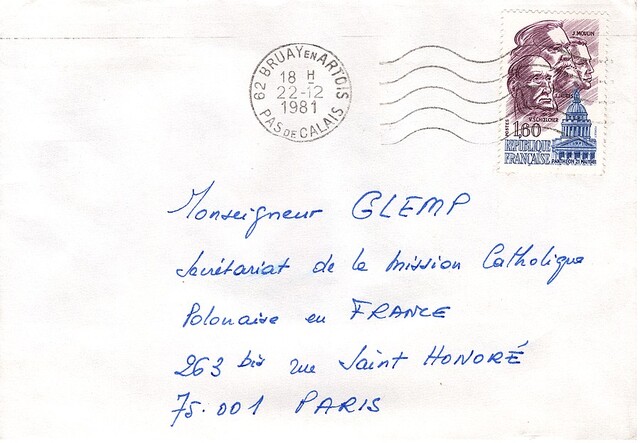 62 BRUAY EN ARTOIS
18 H
22-12
1981
PAS DE CALAIS
J. MOULIN
V. SCHŒLCHER
POSTES 1,60
RÉPUBLIQUE
FRANÇAISE
PANTHÉON 21 MAI 1981
Monseigneur GLEMP
Secrétariat de la Mission Catholique
Polonaise en FRANCE
263 bis rue Saint HONORÉ
75.001 PARIS